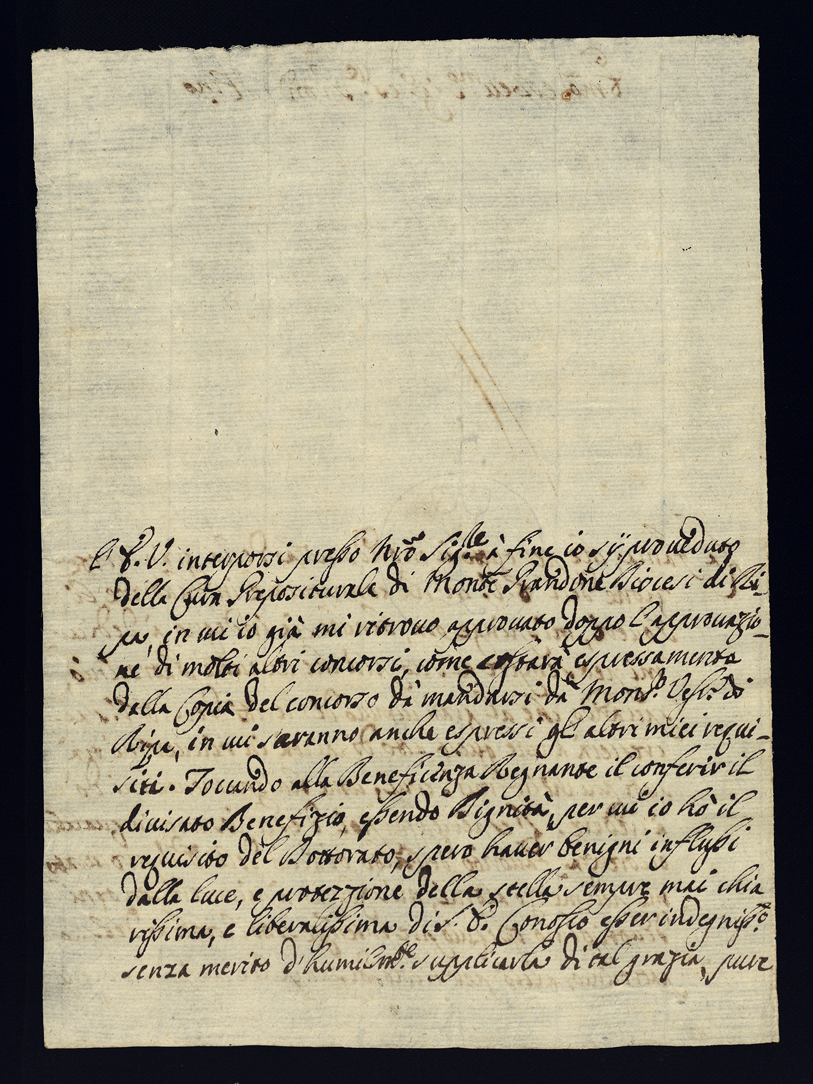 E. V. interporsi presso Nrõ Sig.re à fine io sÿ proueduto
della Cura Prepositurale di Monte Prandone Diocesi di Ri-
pa, in cui io già mi ritrouo approuato doppo l'approuazio-
ne di molti altri concorsi, come costarà espressamente
dalla Copia del concorso dà mandarsi dà Mons.r Vesc.o di
Ripa, in cui saranno anche espressi gl'altri miei requi-
siti. Toccando alla Beneficenza Regnante il conferir il
diuisato Benefizio, essendo Dignità, per cui io hò il
requisito del Dottorato, spero hauer benigni influssi
dalla luce, e protezzione della stella sempre mai chia
rissima, e liberalissima di V. E. Conosco esser indegniss.o
senza merito d'humilm.te supplicarla di tal grazia, pure